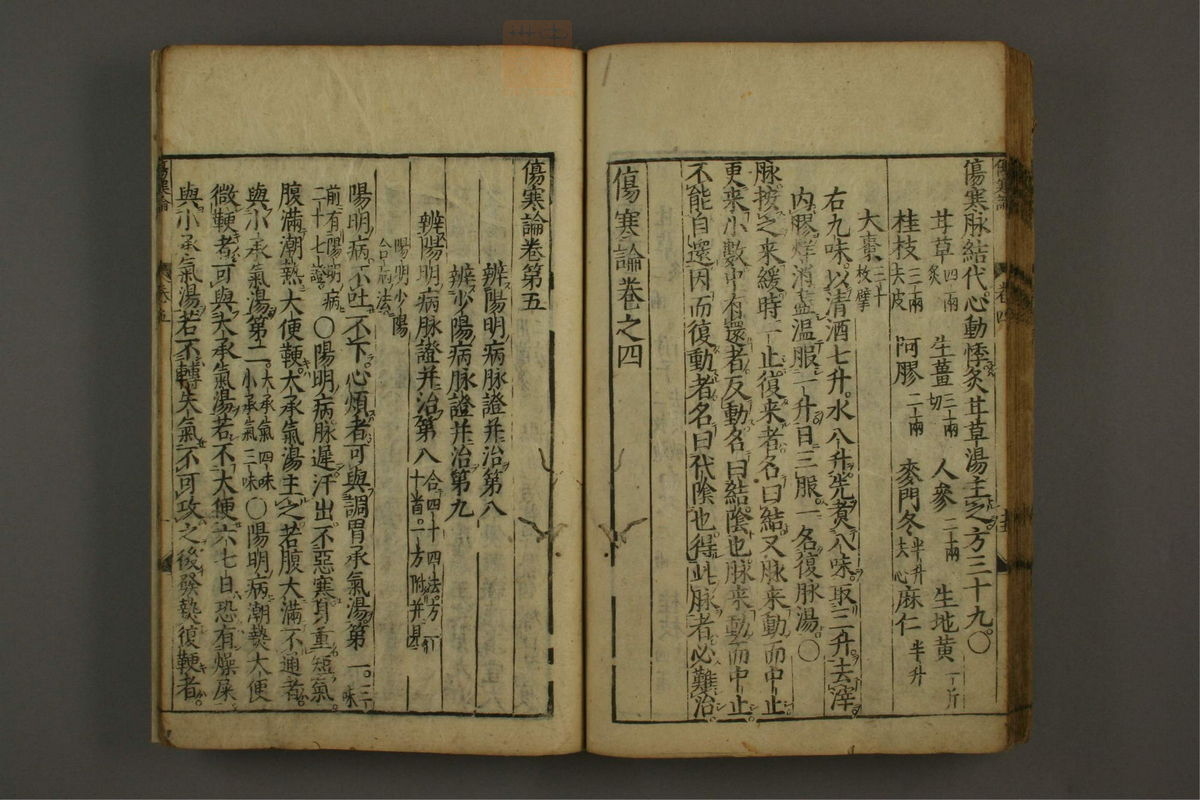 傷寒論 卷四
傷寒脉結代心動悸炙甘草湯主之方三十九○
甘草四兩炙 生薑三兩切 人參二兩 生地黃一斤
桂枝三兩去皮 阿膠二兩 麥門冬半升去心 麻仁半升
大棗三十枚擘
右九味以清酒七升水八升先煑八味取三升去滓
内膠烊消盡温服一升日三服一名復脉湯○
脉按之来緩時一止復来者名曰結又脉来動而中止
更来小數中有還者反動名曰結陰也脉来動而中止
不能自還因而復動者名曰代陰也得此脉者必難治
傷寒論卷之四
傷寒論卷第五
辨陽明病脉證并治第八
辨少陽病脉證并治第九
辨陽明病脉證并治第八 合四十四法方一十首一方附并見
陽明少陽合病法
陽明病不吐不下心煩者可與調胃承氣湯第一三味
前有陽明病二十七證○陽明病脉遲汗出不惡寒身重短氣
腹滿潮熱大便鞕大承氣湯主之若腹大滿不通者
與小承氣湯第二大承氣四味小承氣三味○陽明病潮熱大便
微鞕者可與大承氣湯若不大便六七日恐有燥屎
與小承氣湯若不轉失氣不可攻之後發熱復鞕者
傷寒論 卷五